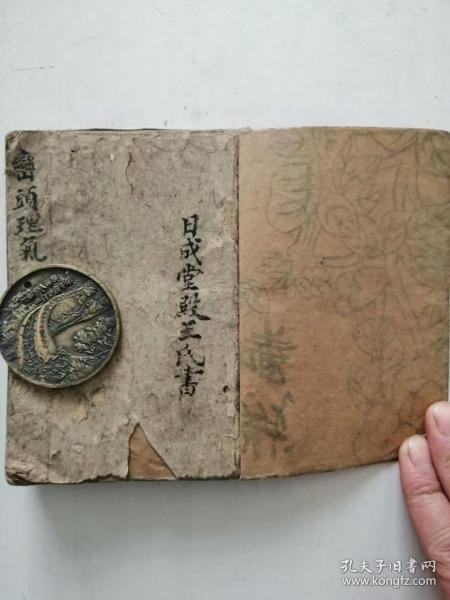 巒頭理氣
日成堂殿王氏書
孔夫子旧书网
www.kongfz.com